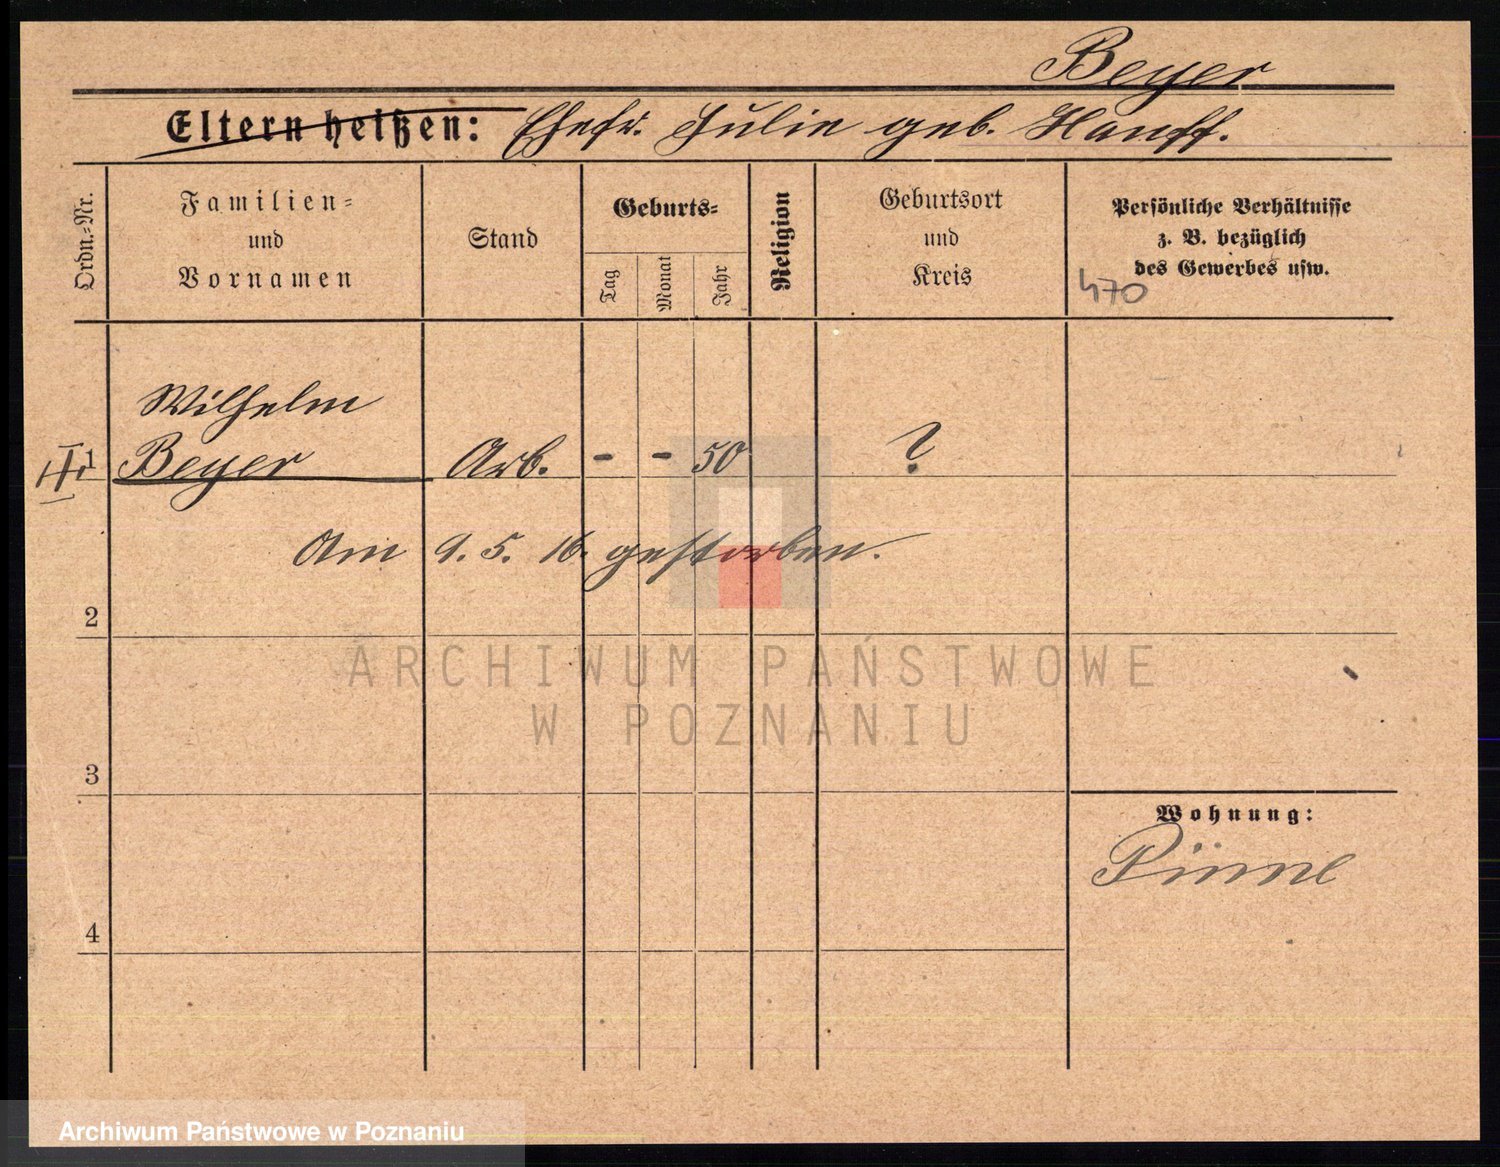 Beyer
Eltern heißen: Ehefr. Julie geb. Hanff.
Ordn.-Nr.
Familien-
und
Vornamen
Stand
Geburts-
Tag
Monat
Jahr
Religion
Geburtsort
und
Kreis
Persönliche Verhältnisse
z. B. bezüglich
des Gewerbes usw.
470
Wilhelm
1 Beyer Arb. - - 50 ?
Am 9. 5. 16. gestorben.
2
ARCHIWUM PAŃSTWOWE
W POZNANIU
3
Wohnung:
Pinne
4
Archiwum Państwowe w Poznaniu